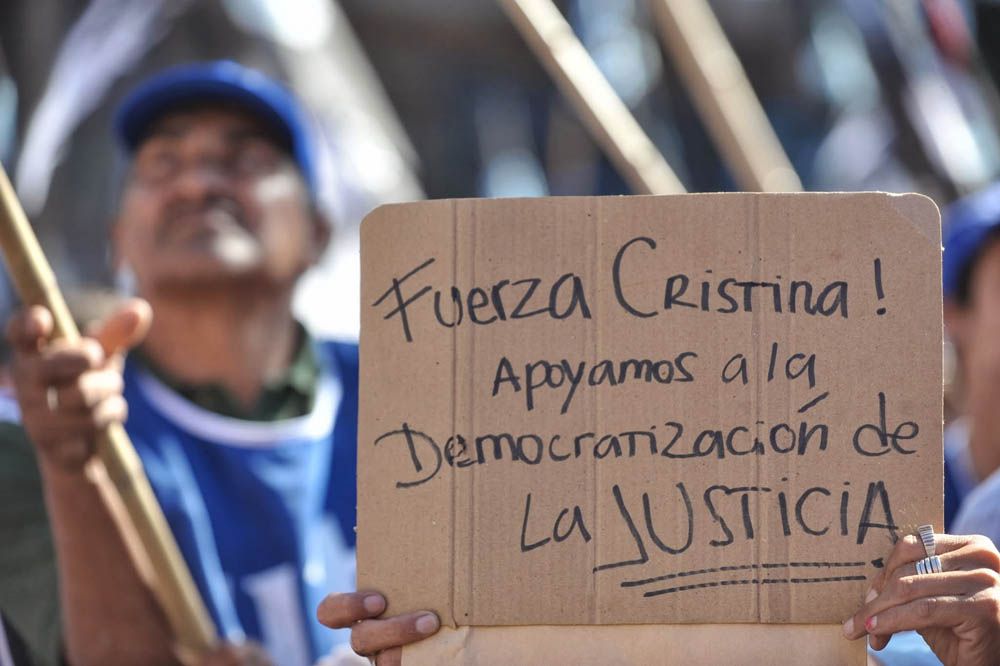 Fuerza Cristina!
Apoyamos a la
Democratización de
La JUSTICIA.